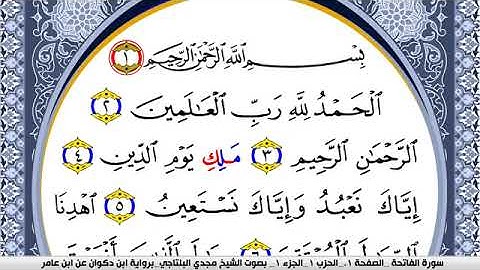 بِسْمِ اللَّهِ الرَّحْمَٰنِ الرَّحِيمِ ١
الْحَمْدُ لِلَّهِ رَبِّ الْعَالَمِينَ ٢
الرَّحْمَٰنِ الرَّحِيمِ ٣ مَلِكِ يَوْمِ الدِّينِ ٤
إِيَّاكَ نَعْبُدُ وَإِيَّاكَ نَسْتَعِينُ ٥ اهْدِنَا
سورة الفاتحة _الصفحة ١_ الحزب ١_ الجزء ١_ بصوت الشيخ مجدي البلتاجي_برواية ابن ذكوان عن ابن عامر